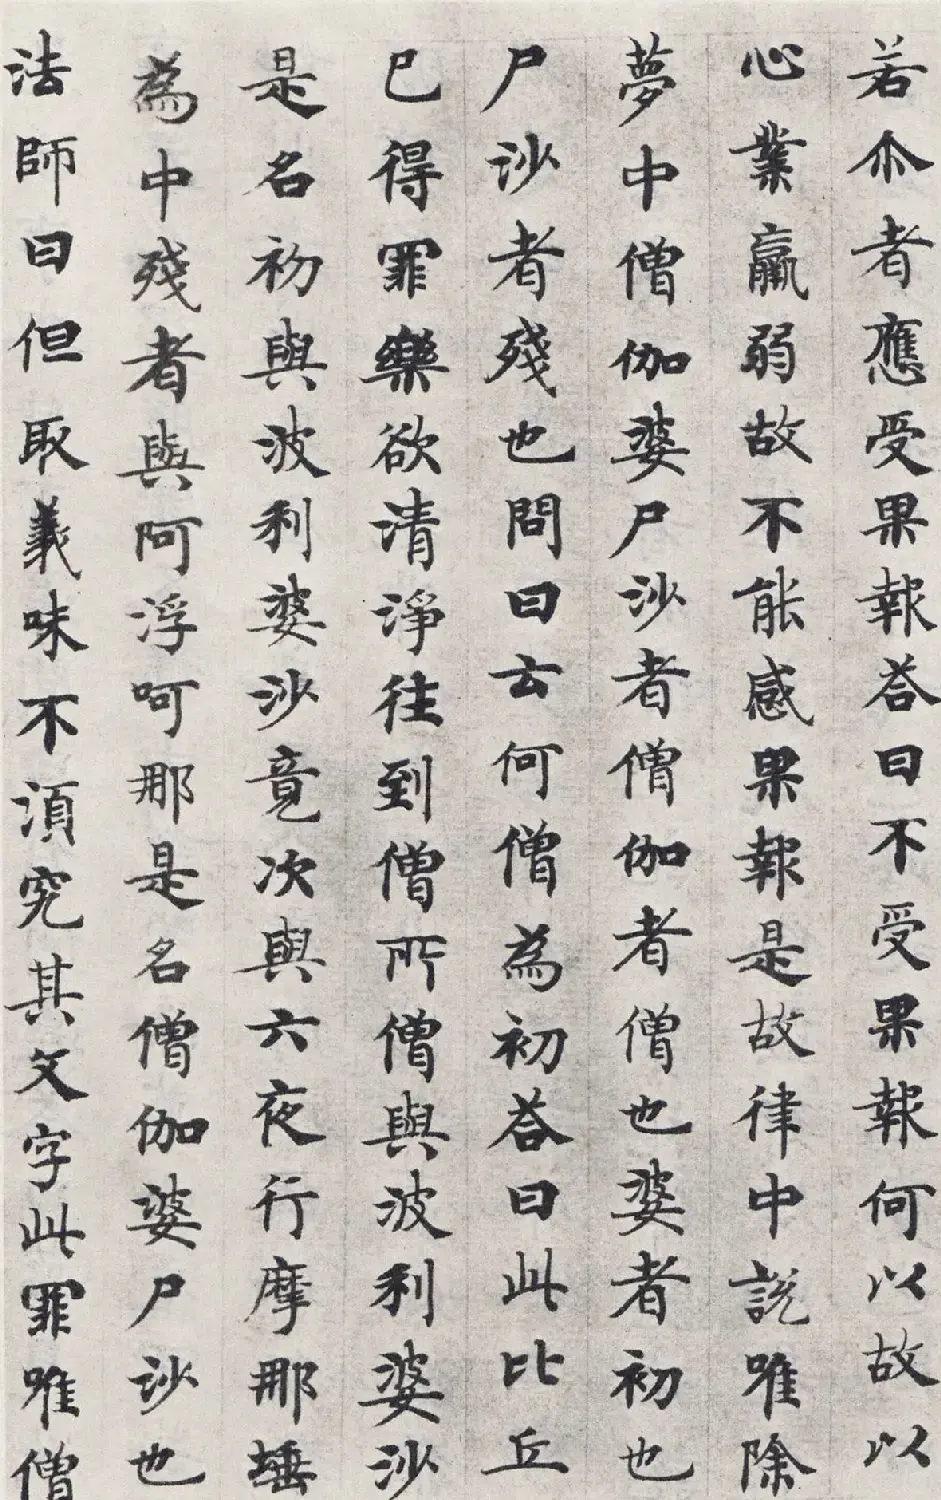 若尒者應受果報荅曰不受果報何以故以
心業羸弱故不能感果報是故律中説唯除
夢中僧伽婆尸沙者僧伽者僧也婆者初也
尸沙者殘也問曰云何僧為初荅曰此比丘
已得罪樂欲清淨往到僧所僧與波利婆沙
是名初與波利婆沙竟次與六夜行摩那埵
為中殘者與阿浮呵那是名僧伽婆尸沙也
法師曰但取義味不湏究其文字此罪唯僧